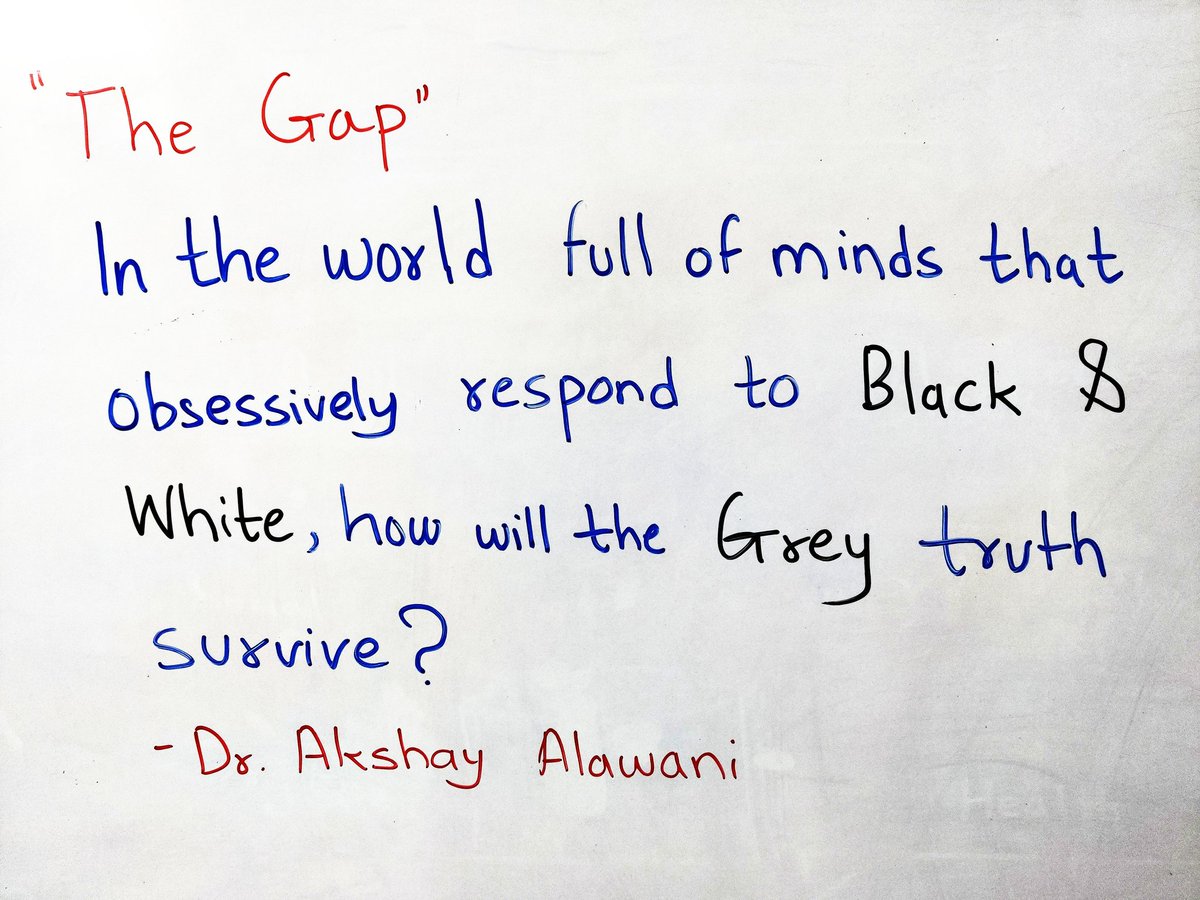 "The Gap"
In the world full of minds that
obsessively respond to Black &
White, how will the Grey truth
survive?
- Dr. Akshay Alawani